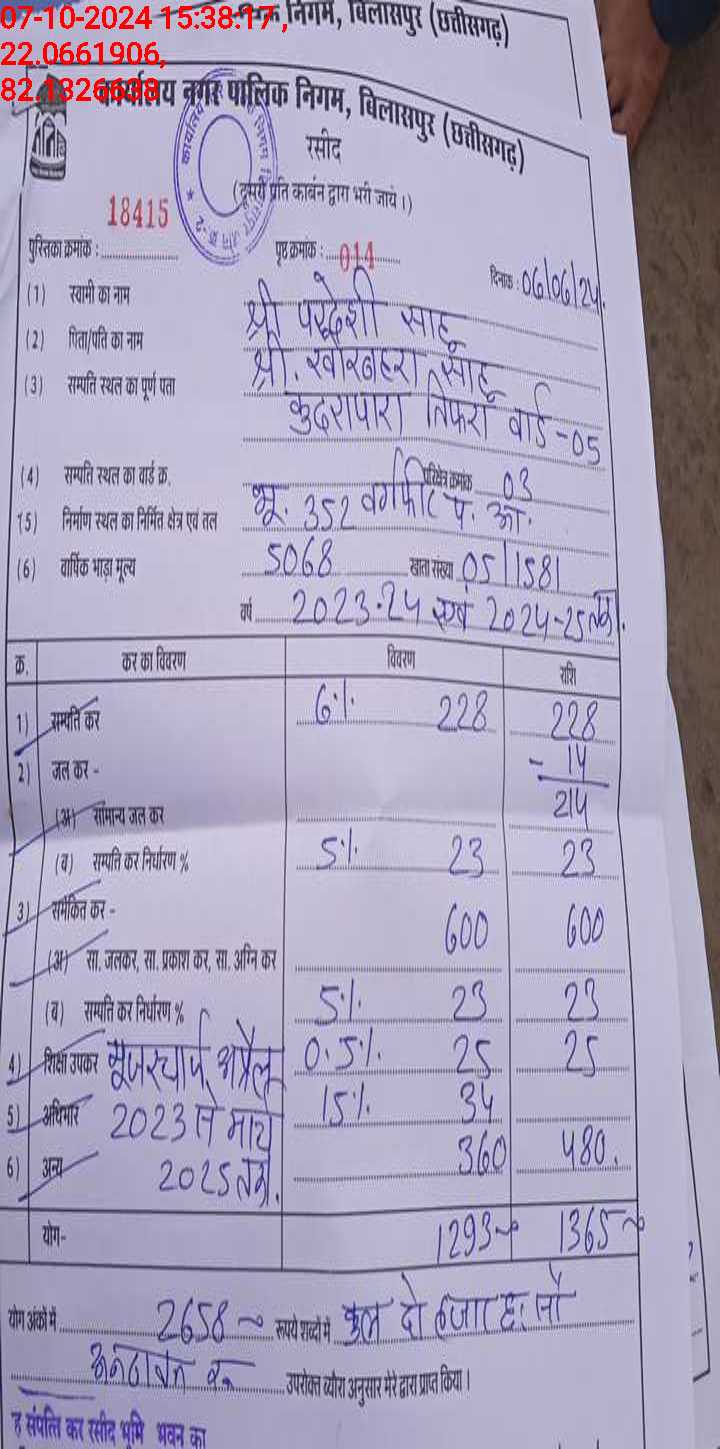 07-10-2024 15:38:17,
निगम, बिलासपुर (छत्तीसगढ़)
22.0661906,
82.1326638
कार्यालय नगर पालिक निगम, बिलासपुर (छत्तीसगढ़)
रसीद
(दूसरी प्रति कार्बन द्वारा भरी जाये।)
18415
पुस्तिका क्रमांक : पृष्ठ क्रमांक : 014
दिनांक : 06/06/24
(1) स्वामी का नाम श्री परदेशी साहू
(2) पिता/पति का नाम श्री. खोरबहरा साहू
(3) सम्पति स्थल का पूर्ण पता कुदरापारा तिफरा वार्ड-05
(4) सम्पति स्थल का वार्ड क्र. परिक्षेत्र क्रमांक 03
(5) निर्माण स्थल का निर्मित क्षेत्र एवं तल भू. 352 वर्गफीट प. आ.
(6) वार्षिक भाड़ा मूल्य 5068 खाता संख्या 05/1581
वर्ष 2023-24 एवं 2024-25 तक.
क्र. कर का विवरण विवरण राशि
1) सम्पति कर 6% 228 228
2) जल कर - - 14
214
(अ) सामान्य जल कर
(ब) सम्पति कर निर्धारण % 5% 23 23
3) समेकित कर -
600 600
(अ) सा. जलकर, सा. प्रकाश कर, सा. अग्नि कर
(ब) सम्पति कर निर्धारण % 5% 23 23
4) शिक्षा उपकर यूजरचार्ज अप्रैल 0.5% 25 25
5) अधिभार 2023 से मार्च 15% 34
6) अन्य 2025 तक. 360 480.
योग- 1293 1365
योग अंकों में 2658 रूपये शब्दों में कुल दो हजार छः सौ
अनठावन रू उपरोक्त व्योरा अनुसार मेरे द्वारा प्राप्त किया।
ह संपत्ति कर रसीद भूमि भवन का